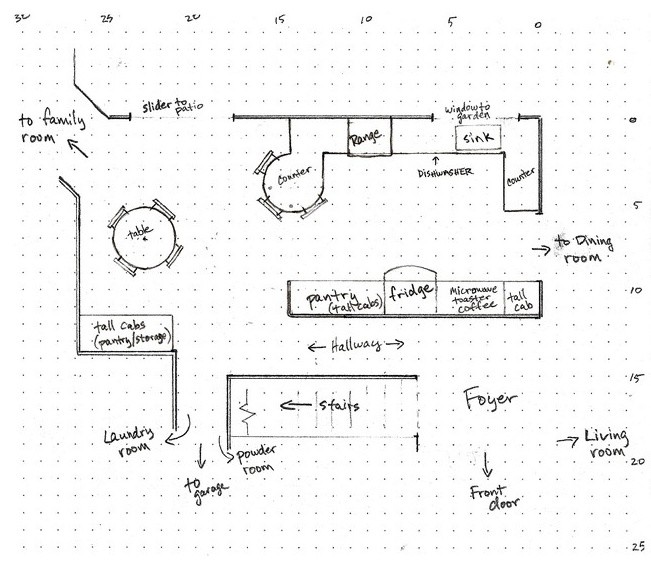 30 25 20 15 10 5 0
slider to
patio
window to
garden
0
to family
room
Range
sink
counter
DISHWASHER
counter
5
table
to Dining
room
10
pantry
(tall cabs)
fridge
Microwave
toaster
coffee
tall
cab
tall cabs
(pantry/storage)
← Hallway →
15
Stairs
Foyer
Laundry
room
powder
room
Living
room
20
to
garage
Front
door
25